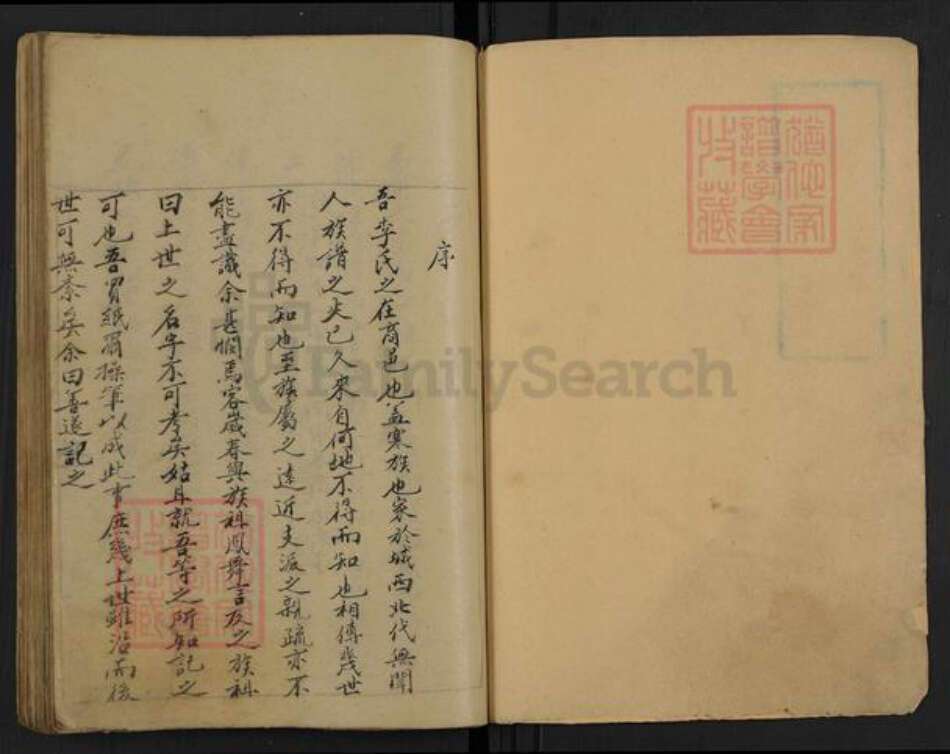 猶他家
譜學會
收藏
序
吾李氏之在商邑也盖寒族也家於城西北代無聞
人族譜之失已久來自何地不得而知也相傳幾世
亦不得而知也至族屬之遠近支派之親疏亦不
能盡識余甚憫焉客歲春與族祖鳳舞言及之族祖
曰上世之名字不可考矣姑且就吾等之所知記之
可也吾買紙爾操筆以成此事庶幾上世雖沿而後
世可無紊矣余曰善遂記之
FamilySearch